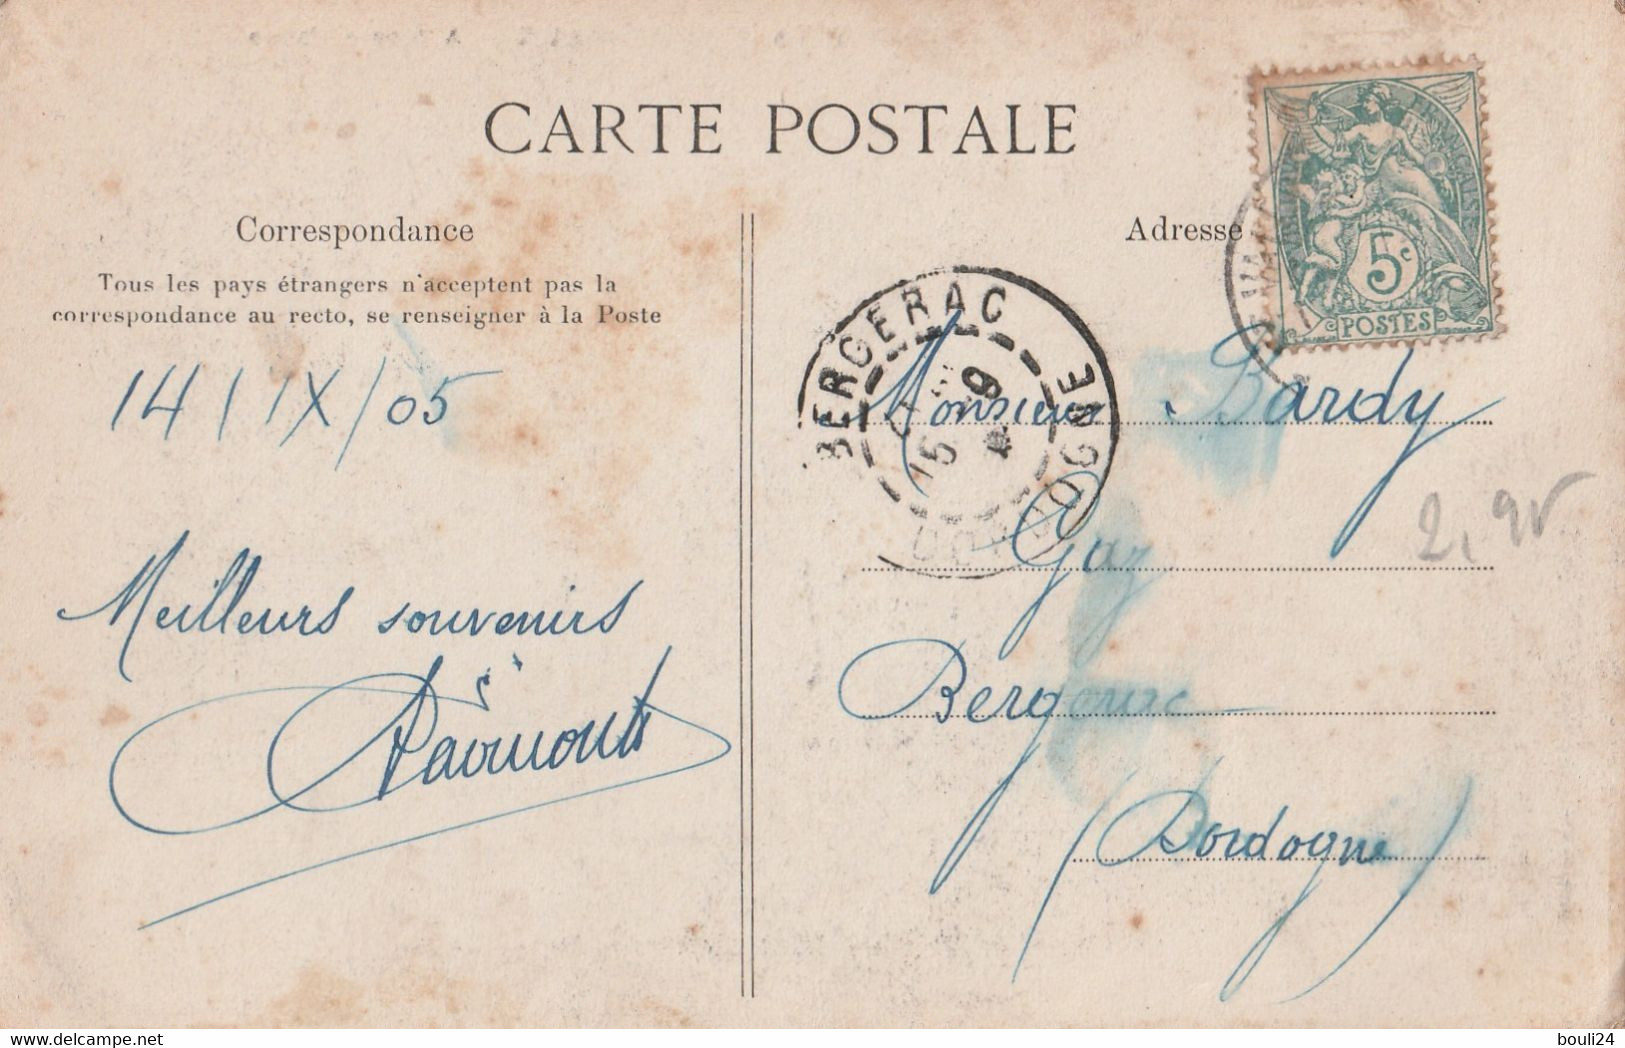 CARTE POSTALE
Correspondance
Tous les pays étrangers n'acceptent pas la
correspondance au recto, se renseigner à la Poste
14 / IX / 05
Meilleurs souvenirs
Adresse
5c
POSTES
BERGERAC
DORDOGNE
15
9
Monsieur Bardy
Gaz
Bergerac
(Dordogne)
2,95
delcampe.net
bouli24